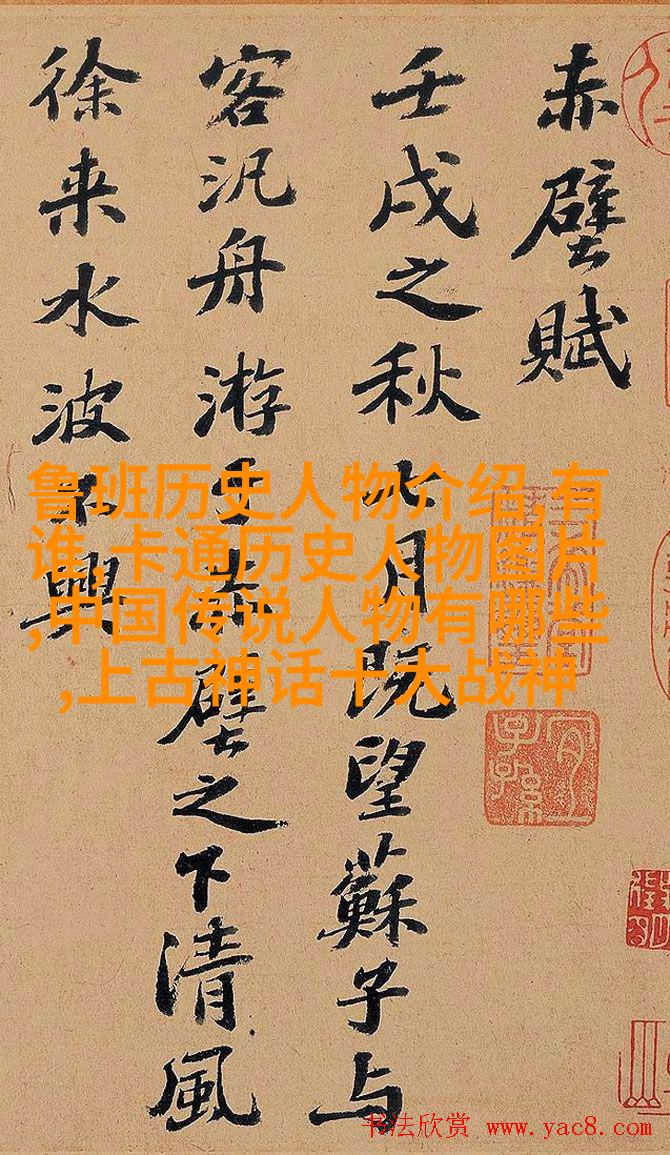 赤壁賦
壬戌之秋七月既望蘇子与
客汎舟游于赤壁之下清風
徐来水波不興
鲁班历史人物介绍,有
谁,卡通历史人物图片
,中国传说人物有哪些
,上古神话十大战神
书法欣赏 www.yac8.com